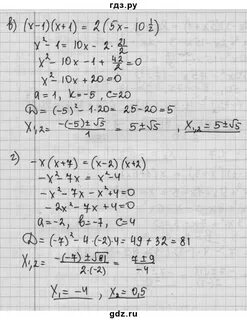 гдз.ру
в) (x-1)(x+1) = 2(5x-10 1/2)
x²-1 = 10x - 2·21/2
x² - 10x - 1 + 42/2 = 0
x² - 10x + 20 = 0
a = 1, k = -5, c = 20
D = (-5)² - 1·20 = 25 - 20 = 5
X₁,₂ = (-(-5)±√5)/1 = 5±√5, X₁,₂ = 5±√5
г) -x(x+7) = (x-2)(x+2)
-x² - 7x = x² - 4
-x² - 7x - x² + 4 = 0
-2x² - 7x + 4 = 0
a = -2, b = -7, c = 4
D = (-7)² - 4·(-2)·4 = 49 + 32 = 81
X₁,₂ = (-(-7)±√81)/(2·(-2)) = (7±9)/(-4)
X₁ = -4, X₂ = 0,5
gdz.ru